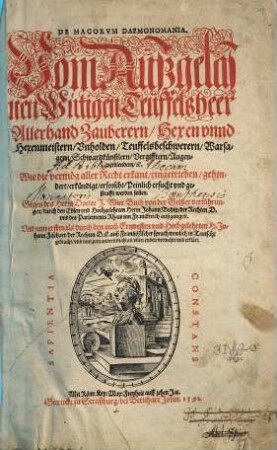 DE MAGORVM DAEMONOMANIA.
Vom Außgelaß
nen Wütigen Teuffelsheer
Allerhand Zauberern / Hexen vnnd
Hexenmeistern / Vnholden / Teuffelsbeschwerern / Warsa-
gern / Schwartzkünstlern / Vergifftern / Augen-
verblendern / etc.
Wie die vermög aller Recht erkant / eingetrieben / gehin-
dert / erkündigt / erforscht / Peinlich ersucht vnd ge-
strafft werden sollen.
Gegen des Herrn Doctor J. Wier Buch von der Geister verführun-
gen / durch den Edlen vnd Hochgelehrten Herrn Johann Bodin / der Rechten D.
vnd des Parlements Rhats inn Franckreich außgangen.
Vnd nun erstmals durch den auch Ernvesten vnd Hochgelehrten H. Jo-
hann Fischart / der Rechten D. etc. auß Frantzösischer sprach trewlich in Teutsche
gebracht / vnd nun zum andernmal an vilen enden vermehrt vnd erklärt.
SAPIENTIA
CONSTANS
Mit Röm. Key. May. Freyheit auff zehen Jar.
Getruckt zu Straßburg / bei Bernhart Jobin. 1591